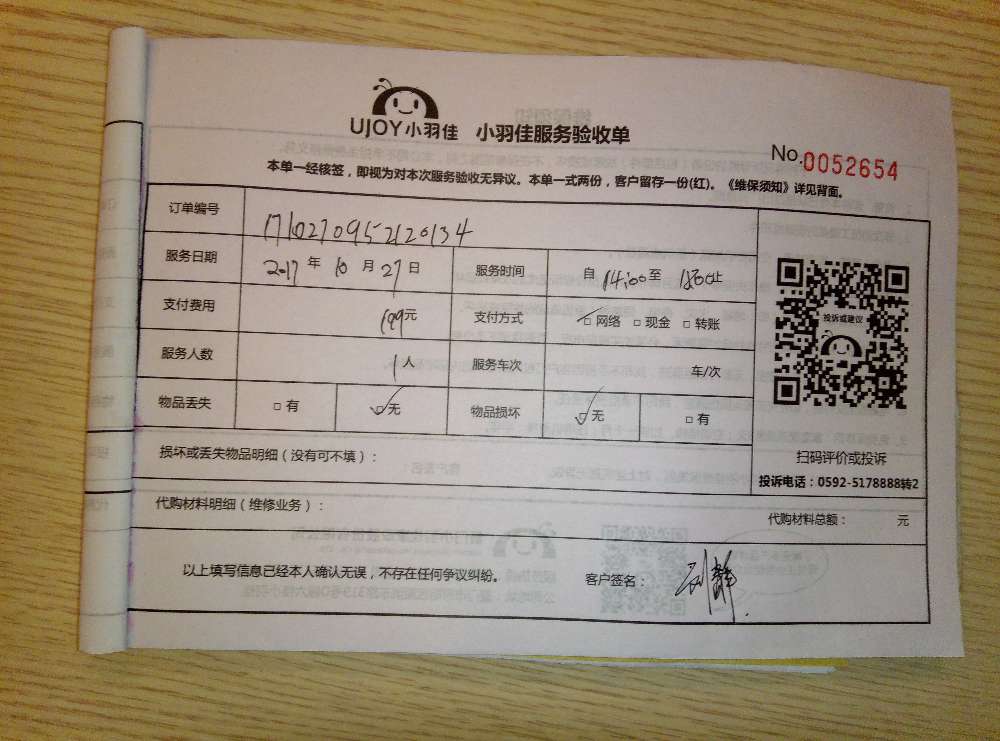 UJOY小羽佳 小羽佳服务验收单
No.0052654
本单一经核签，即视为对本次服务验收无异议。本单一式两份，客户留存一份(红)。《维保须知》详见背面。
订单编号 1710270952120134
服务日期 2017年10月27日 服务时间 自14:00至 止
支付费用 199元 支付方式 □网络 □现金 □转账
服务人数 1人 服务车次 车/次
物品丢失 □有 ☑无 物品损坏 ☑无 □有
投诉或建议
扫码评价或投诉
投诉电话：0592-5178888转2
损坏或丢失物品明细（没有可不填）：
代购材料明细（维修业务）：
代购材料总额： 元
以上填写信息已经本人确认无误，不存在任何争议纠纷。 客户签名：刘静